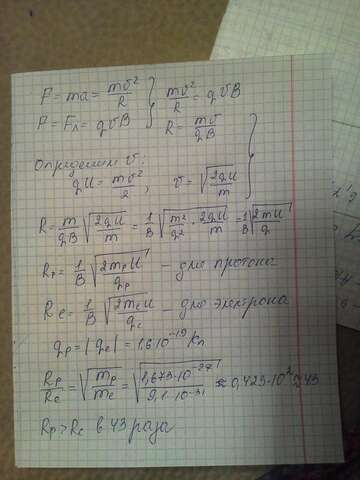 F = ma = mv²/R } mv²/R = qvB
F = Fл = qvB } R = mv/qB
Определим v:
qU = mv²/2, v = √(2qU/m)
R = m/qB √(2qU/m) = 1/B √(m²/q² · 2qU/m) = 1/B √(2mU/q)
Rp = 1/B √(2mpU/qp) – для протона
Re = 1/B √(2meU/qe) – для электрона
qp = |qe| = 1,6·10⁻¹⁹ Кл
Rp/Re = √(mp/me) = √(1,673·10⁻²⁷/9,1·10⁻³¹) ≈ 0,429·10² ≈ 43
Rp > Re в 43 раза